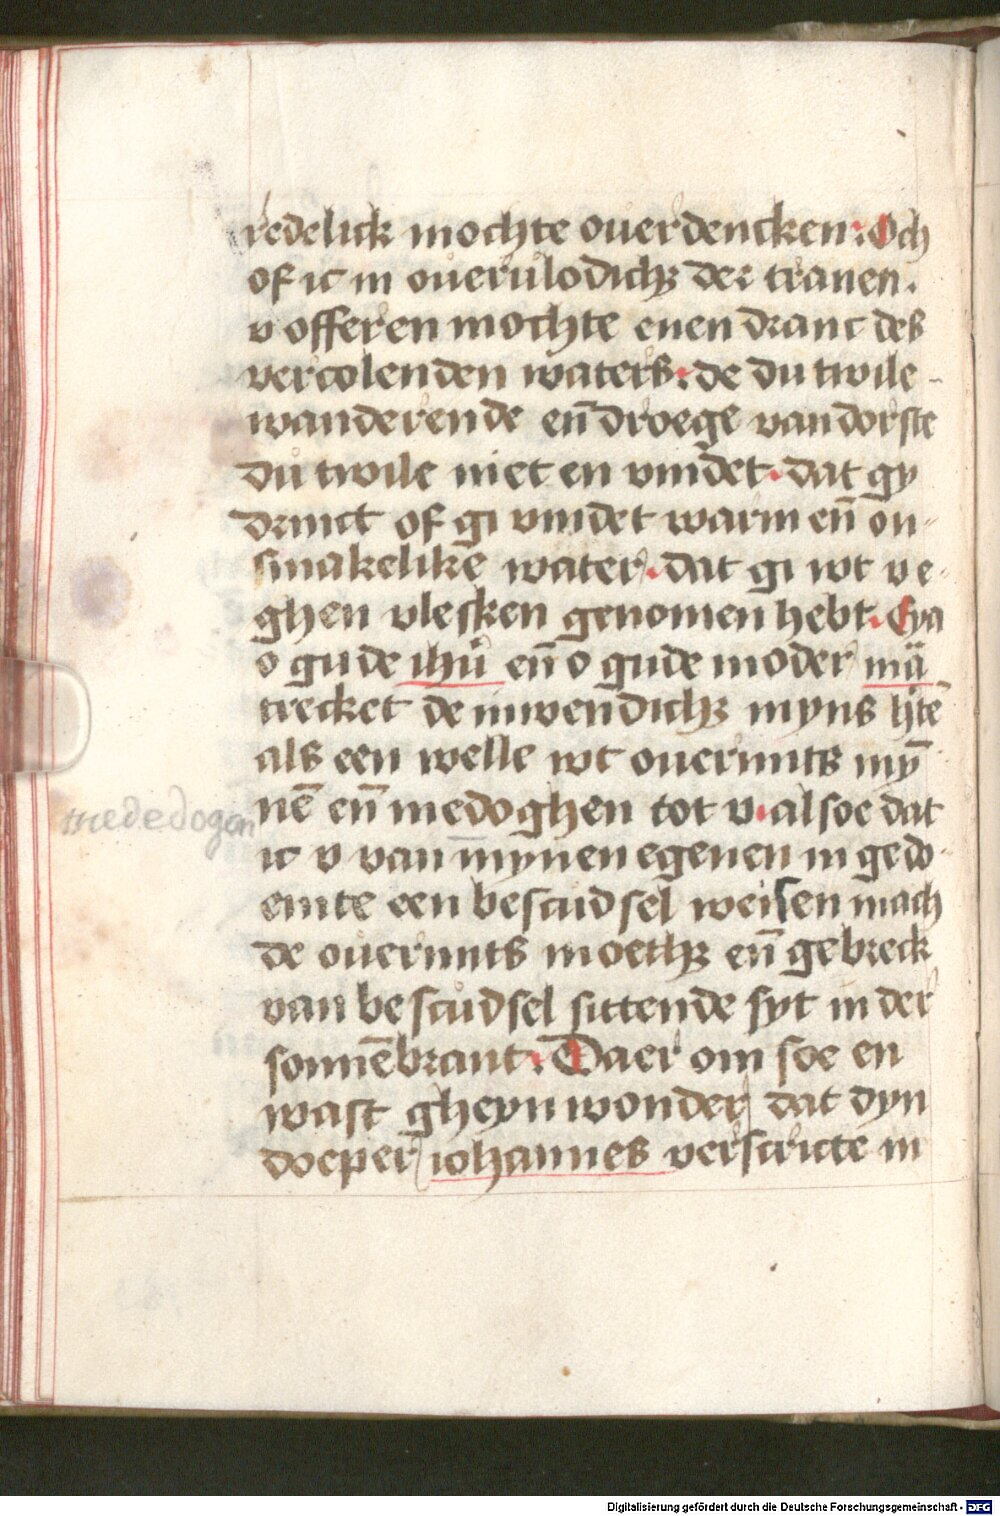 redelick mochte ouerdencken. Och
of ic in ouerulodichꝫ der tranen.
v offeren mochte enen dranc des
vercolenden waters. de du twile-
wanderende en̄ droege van dorste
du twile niet en vindet. dat gy
drinct of gi vindet warm en̄ on-
smakelike water. dat gi wt ve-
ghen vlesken genomen hebt. Eya
o gude ihū en̄ o gude moder mā
trecket de inwendichꝫ myns hʹtē
als een welle wt ouermits mȳ
nē en̄ medoghen tot v. alsoe dat
mededogen
ic v van mynen egenen in gedo-
emte een bescudsel weisen mach
de ouermits moethꝫ en̄ gebreck
van bescudsel sittende syt in der
sonnēbrant. Daer om soe en
wast gheyn wonder dat dyn
doeper iohannes verscricte in
Digitalisierung gefördert durch die Deutsche Forschungsgemeinschaft - DFG